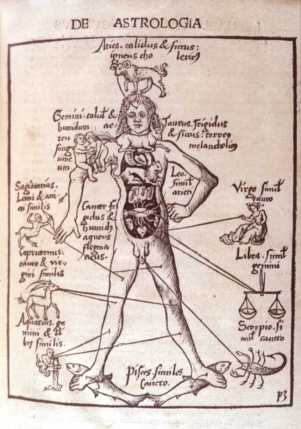 DE ASTROLOGIA
Aries. calidus & siccus:
igneus cho lericus
Gemini. calid⁹ &
humidus ae
reu
sang
uine
us
Taurus. frigidus
& siccus: terreus
melancholicus
Leo.
simil
arieti
Cancer fri
gidus &
humid⁹
aqueus
flegma
ticus
Sagittarius.
Leoni & ari
eti similis
Virgo simil'
tauro
Capricornus
tauro & vir
gini similis
Libra. simil'
gemini
Aquarius. ge
mini & li
bre similis.
Scorpio. si
mil' cancro
Pisces similes
Cancro.
p3